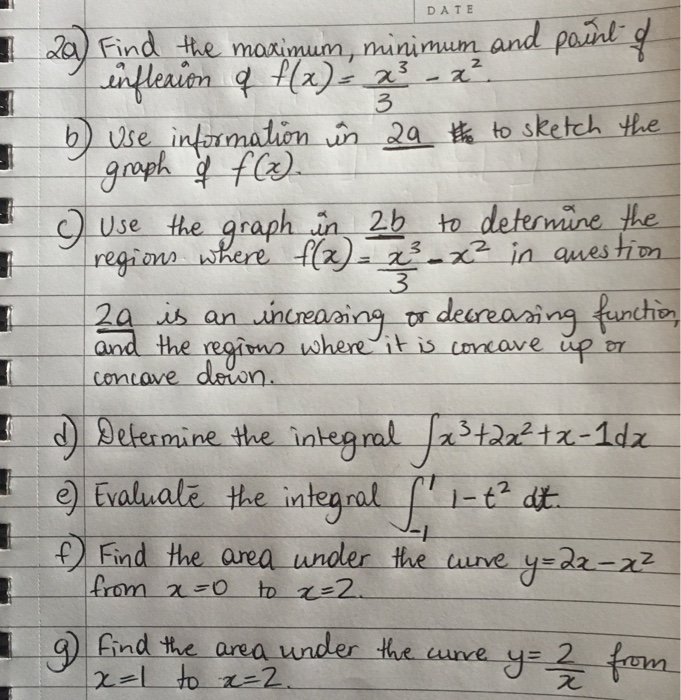 DATE
2a) Find the maximum, minimum and point of
inflexion of f(x) = x³/3 - x².
b) Use information in 2a to sketch the
graph of f(x).
c) Use the graph in 2b to determine the
regions where f(x) = x³/3 - x² in question
2a is an increasing or decreasing function,
and the regions where it is concave up or
concave down.
d) Determine the integral ∫x³+2x²+x-1dx
e) Evaluate the integral ∫₋₁¹ 1-t² dt.
f) Find the area under the curve y=2x-x²
from x=0 to x=2.
g) Find the area under the curve y= 2/x from
x=1 to x=2.